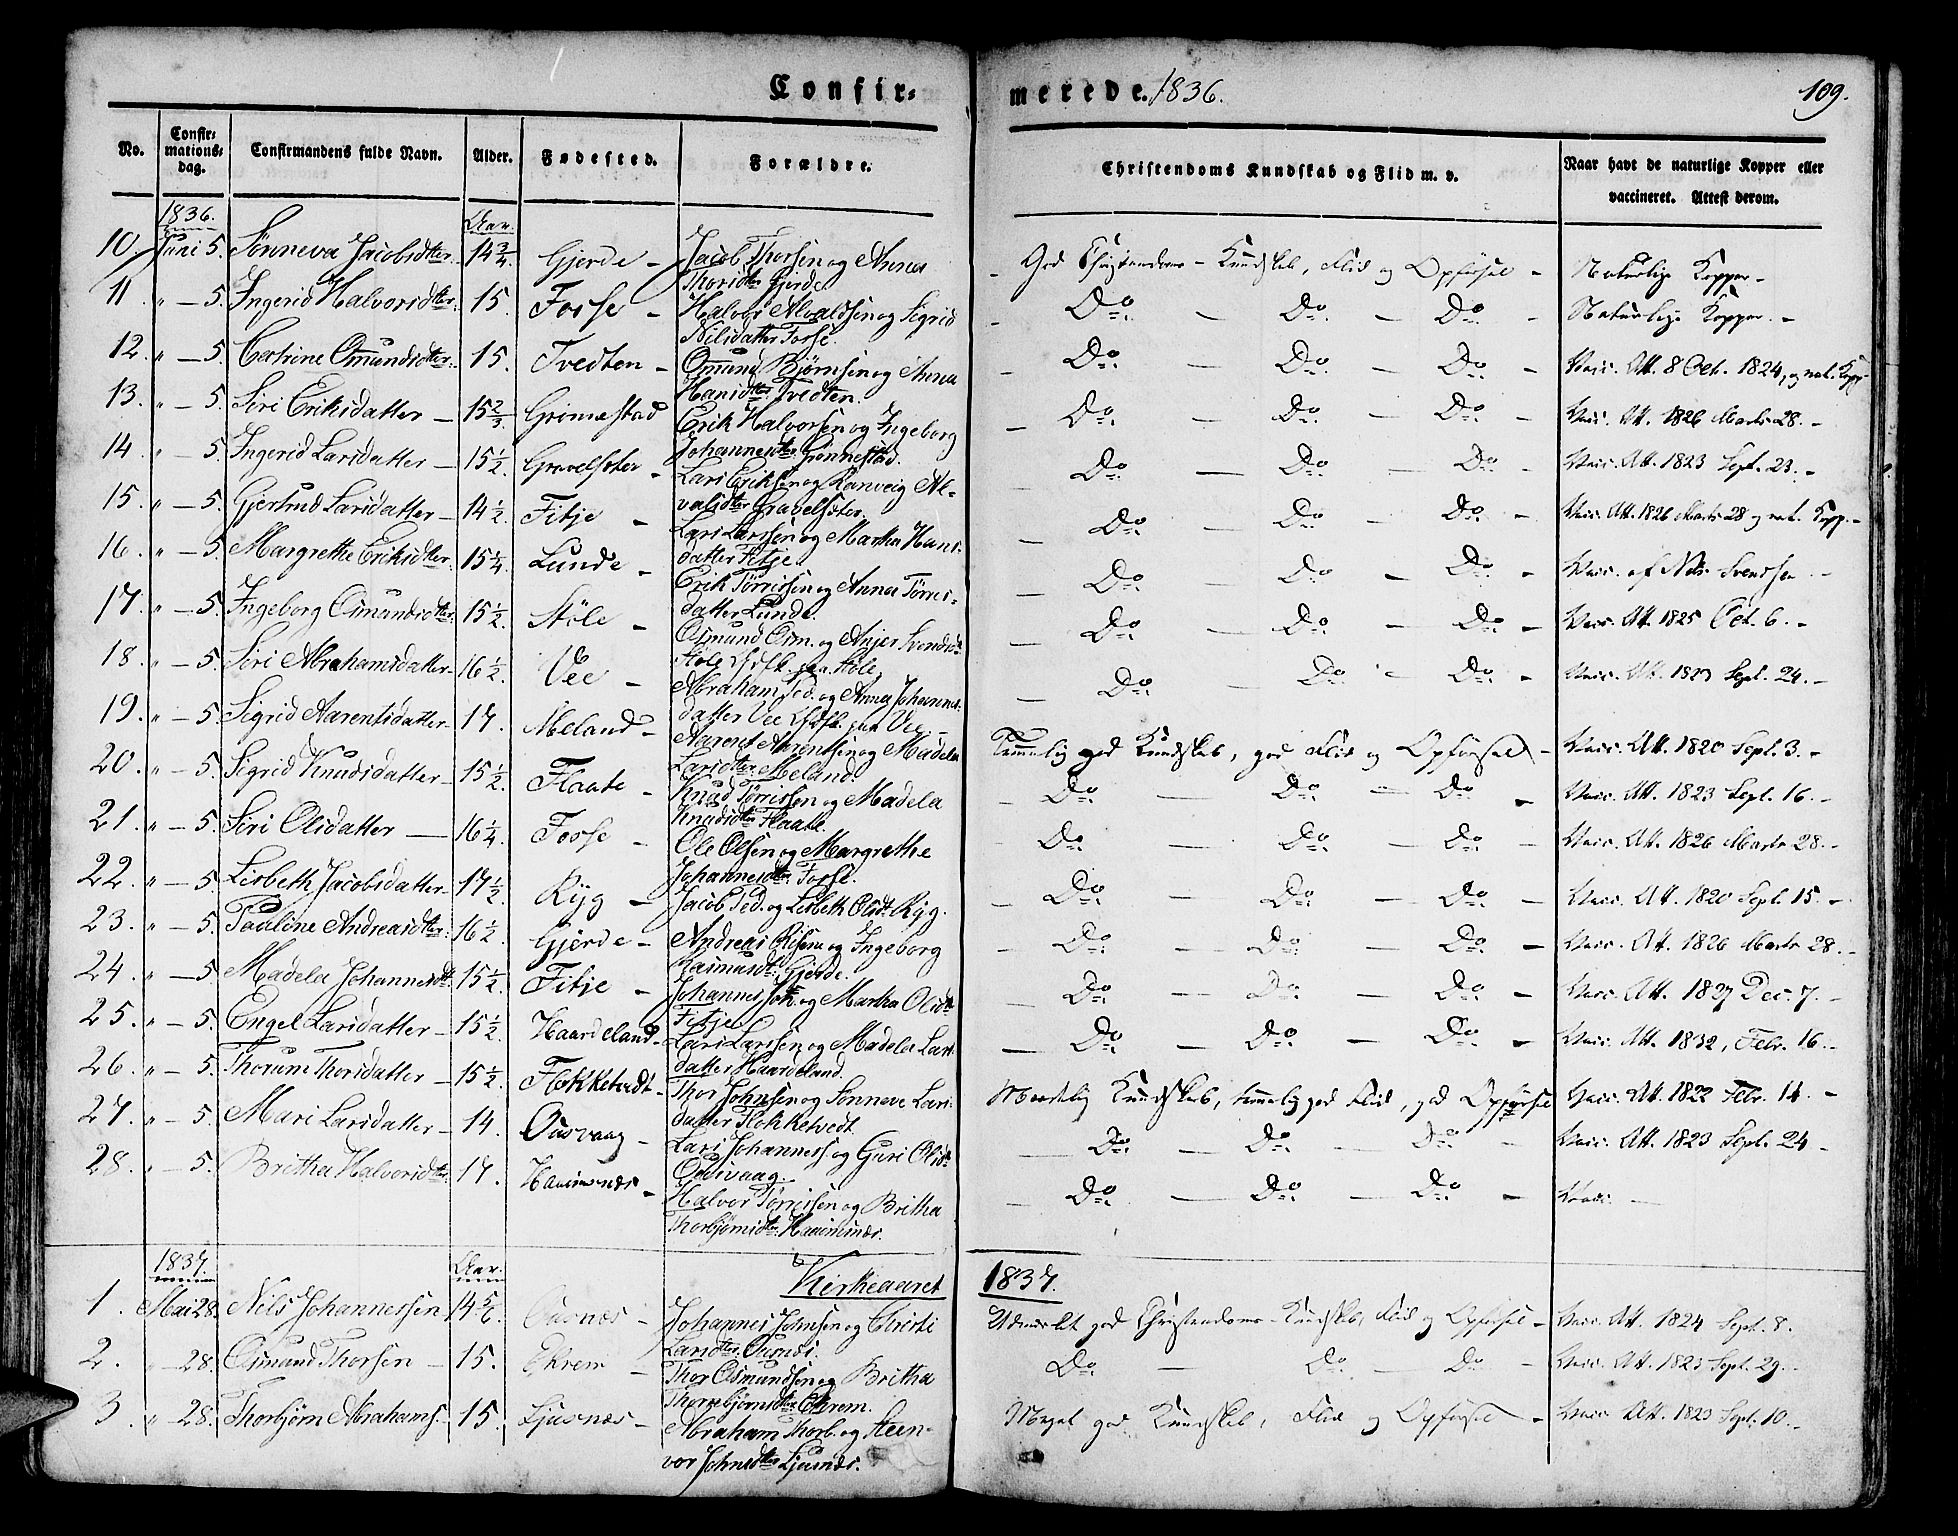 Confir-
merede. 1836.
109.
No.
Confir-
mations-
dag.
Confirmandens fulde Navn.
Alder.
Fødested.
Forældre.
Christendoms Kundskab og Flid m. v.
Naar havt de naturlige Kopper eller
vaccineret. Attest derom.
1836.
Aar.
10. Juni 5. Sønneva Jacobsdtter 14 3/4 Gjerde - Jacob Thorsen og Anna
Thorsdtter Gjerde
God Christendoms-Kundskab, Flid og Opførsel - Naturlige Kopper -
11. " - 5. Ingerid Halvorsdtter 15. Fosse - Halvor Alvaldsen og Sigrid
Nilsdatter Fosse.
Do. - Do. - Do. - Naturlige Kopper. -
12. " - 5. Catrine Osmundsdtter 15. Tvedten - Osmund Bjørnsen og Anna
Hansdtter Tvedten.
Do. - Do. - Do. - Vacc. Att. 8 Oct. 1824, og nat. Kopp-
13. " - 5. Siri Eriksdatter - 15 2/3 Grimestad Erik Halvorsen og Ingeborg
Johannesdtter Grønnestad.
Do. - Do. - Do. - Vacc. Att. 1826 Marts 28. -
14. " - 5. Ingerid Larsdatter - 15 1/2. Gravelsæter - Lars Eriksen og Ranveig Al-
valdsdtter Gravelsæter.
Do. - Do. - Do. - Vacc. Att. 1823 Sept. 23. -
15. " - 5. Gjertrud Larsdatter - 14 1/2. Fitje - Lars Larssen og Martha Hans-
datter Fitje.
Do. - Do. - Do. - Vacc. Att. 1826 Marts 28 og nat. Kopp. -
16. " - 5. Margrethe Eriksdtter 15 1/4. Lunde - Erik Tørrissen og Anna Tørres-
datter Lunde.
Do. - Do. - Do. - Vacc. af Nils Svendsen. -
17. " - 5. Ingeborg Osmundsdtter 15 1/2. Støle - Osmund Osm. og Anjer Svendsd.
Støle
Do. - Do. - Do. - Vacc. Att. 1825 Oct. 6. -
18. " - 5. Siri Abrahamsdatter - 16 1/2. Vee - Abraham Ped. og Anna Johannes
datter Vee
Do. - Do. - Do. - Vacc. Att. 1823 Sept. 24. -
19. " - 5. Sigrid Aarentsdatter - 17. Meland - Aarent Aarentsen og Madela
Larsdtter Meland.
Temmelig god Kundskab, god Flid og Opførsel - Vacc. Att. 1820 Sept. 3. -
20. " - 5. Sigrid Knudsdatter - 15 1/2. Flaate - Knud Tørrissen og Madela
Knudsdtter Flaate.
Do. - Do. - Do. - Vacc. Att. 1823 Sept. 16. -
21. " - 5. Siri Olsdatter - 16 1/4. Fosse - Ole Olsen og Margrethe
Johannesdtter Fosse.
Do. - Do. - Do. - Vacc. Att. 1826 Marts 28. -
22. " - 5. Lisbeth Jacobsdatter - 17 1/2. Ryg - Jacob Ped. og Lisbeth Olsdt. Ryg.
Do. - Do. - Do. - Vacc. Att. 1820 Sept. 15. -
23. " - 5. Pauline Andreasdtter 16 1/2. Gjerde - Andreas og Ingeborg
Rasmusdt. Gjerde.
Do. - Do. - Do. - Vacc. Att. 1826 Marts 28. -
24. " - 5. Madela Johannesdt. 15 1/2. Fitje - Johannes Joh. og Martha Olsdt.
Fitje
Do. - Do. - Do. - Vacc. Att. 1827 Dec. 7. -
25. " - 5. Engel Larsdatter - 15 1/2. Haardeland - Lars Larssen og Madela Lars-
datter Haardeland.
Do. - Do. - Do. - Vacc. Att. 1832, Febr. 16. -
26. " - 5. Thorun Thorsdatter - 15 1/2. Flokketvedt - Thor Johnsen og Sønneve Lars-
datter Flokketvedt.
Maadelig Kundskab, temmelig god Flid, god Opførsel Vacc. Att. 1822 Febr. 14. -
27. " - 5. Mari Larsdatter - 14. Ousvaag - Lars Johanness. og Guri Olsdt.
Do. - Do. - Do. - Vacc. Att. 1823 Sept. 24 -
28. " - 5. Britha Halvorsdtter 17. - Halvor Tørrissen og Britha
Thorbjørnsdtter
Do. - Do. - Do. -
1837.
Aar.
Kirkeaaret 1837.
1. Mai 28. Nils Johannessen 14 5/6. Ousnæs - Johannes Johnsen og Christi
Larsdtter Ousnæs.
Udmærket god Christendoms-Kundskab, Flid og Opførsel - Vacc. Att. 1824 Sept. 8.
2. " - 28. Osmund Thorsen - 15. Ekrem - Thor Osmundsen og Britha
Thorbjørnsdtter Ekrem.
Do. - Do. - Do. - Vacc. Att. 1823 Sept. 29. -
3. " - 28. Thorbjørn Abrahams. 15. Ljusnæs - Abraham Thorb. og Steen-
vor Johnsdtter Ljusnæs.
Meget god Kundskab, Flid og Opførsel - Vacc. Att. 1823 Sept. 10. -